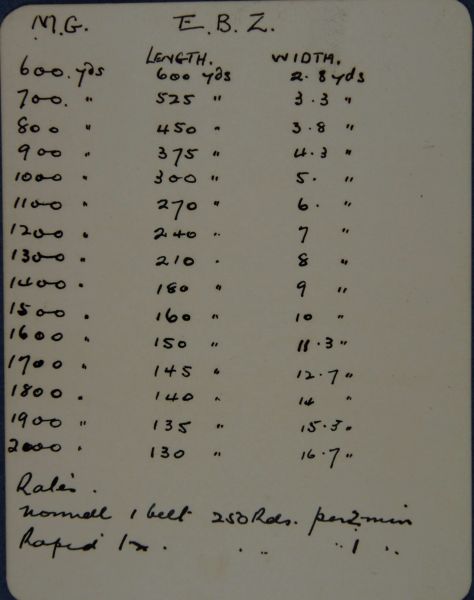 M.G. E.B.Z.
LENGTH. WIDTH.
600. yds 600 yds 2.8 yds
700. " 525 " 3.3 "
800 " 450 " 3.8 "
900 " 375 " 4.3 "
1000 " 300 " 5. "
1100 " 270 " 6. "
1200 " 240 " 7 "
1300 " 210 " 8 "
1400 " 180 " 9 "
1500 " 160 " 10 "
1600 " 150 " 11.3 "
1700 " 145 " 12.7 "
1800 " 140 " 14 "
1900 " 135 " 15.3 "
2000 " 130 " 16.7 "
Rates.
Normall 1 belt 250 Rds. per 2 min
Rapid 1 " " " 1 "